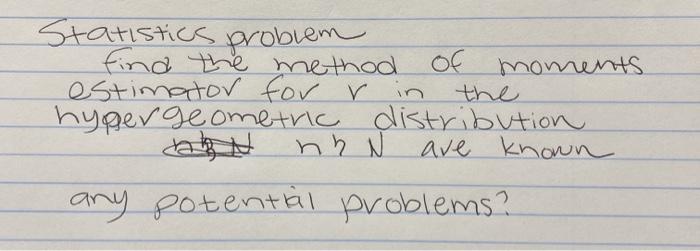 Statistics problem
find the method of moments
estimator for r in the
hypergeometric distribution
n & N are known
any potential problems?